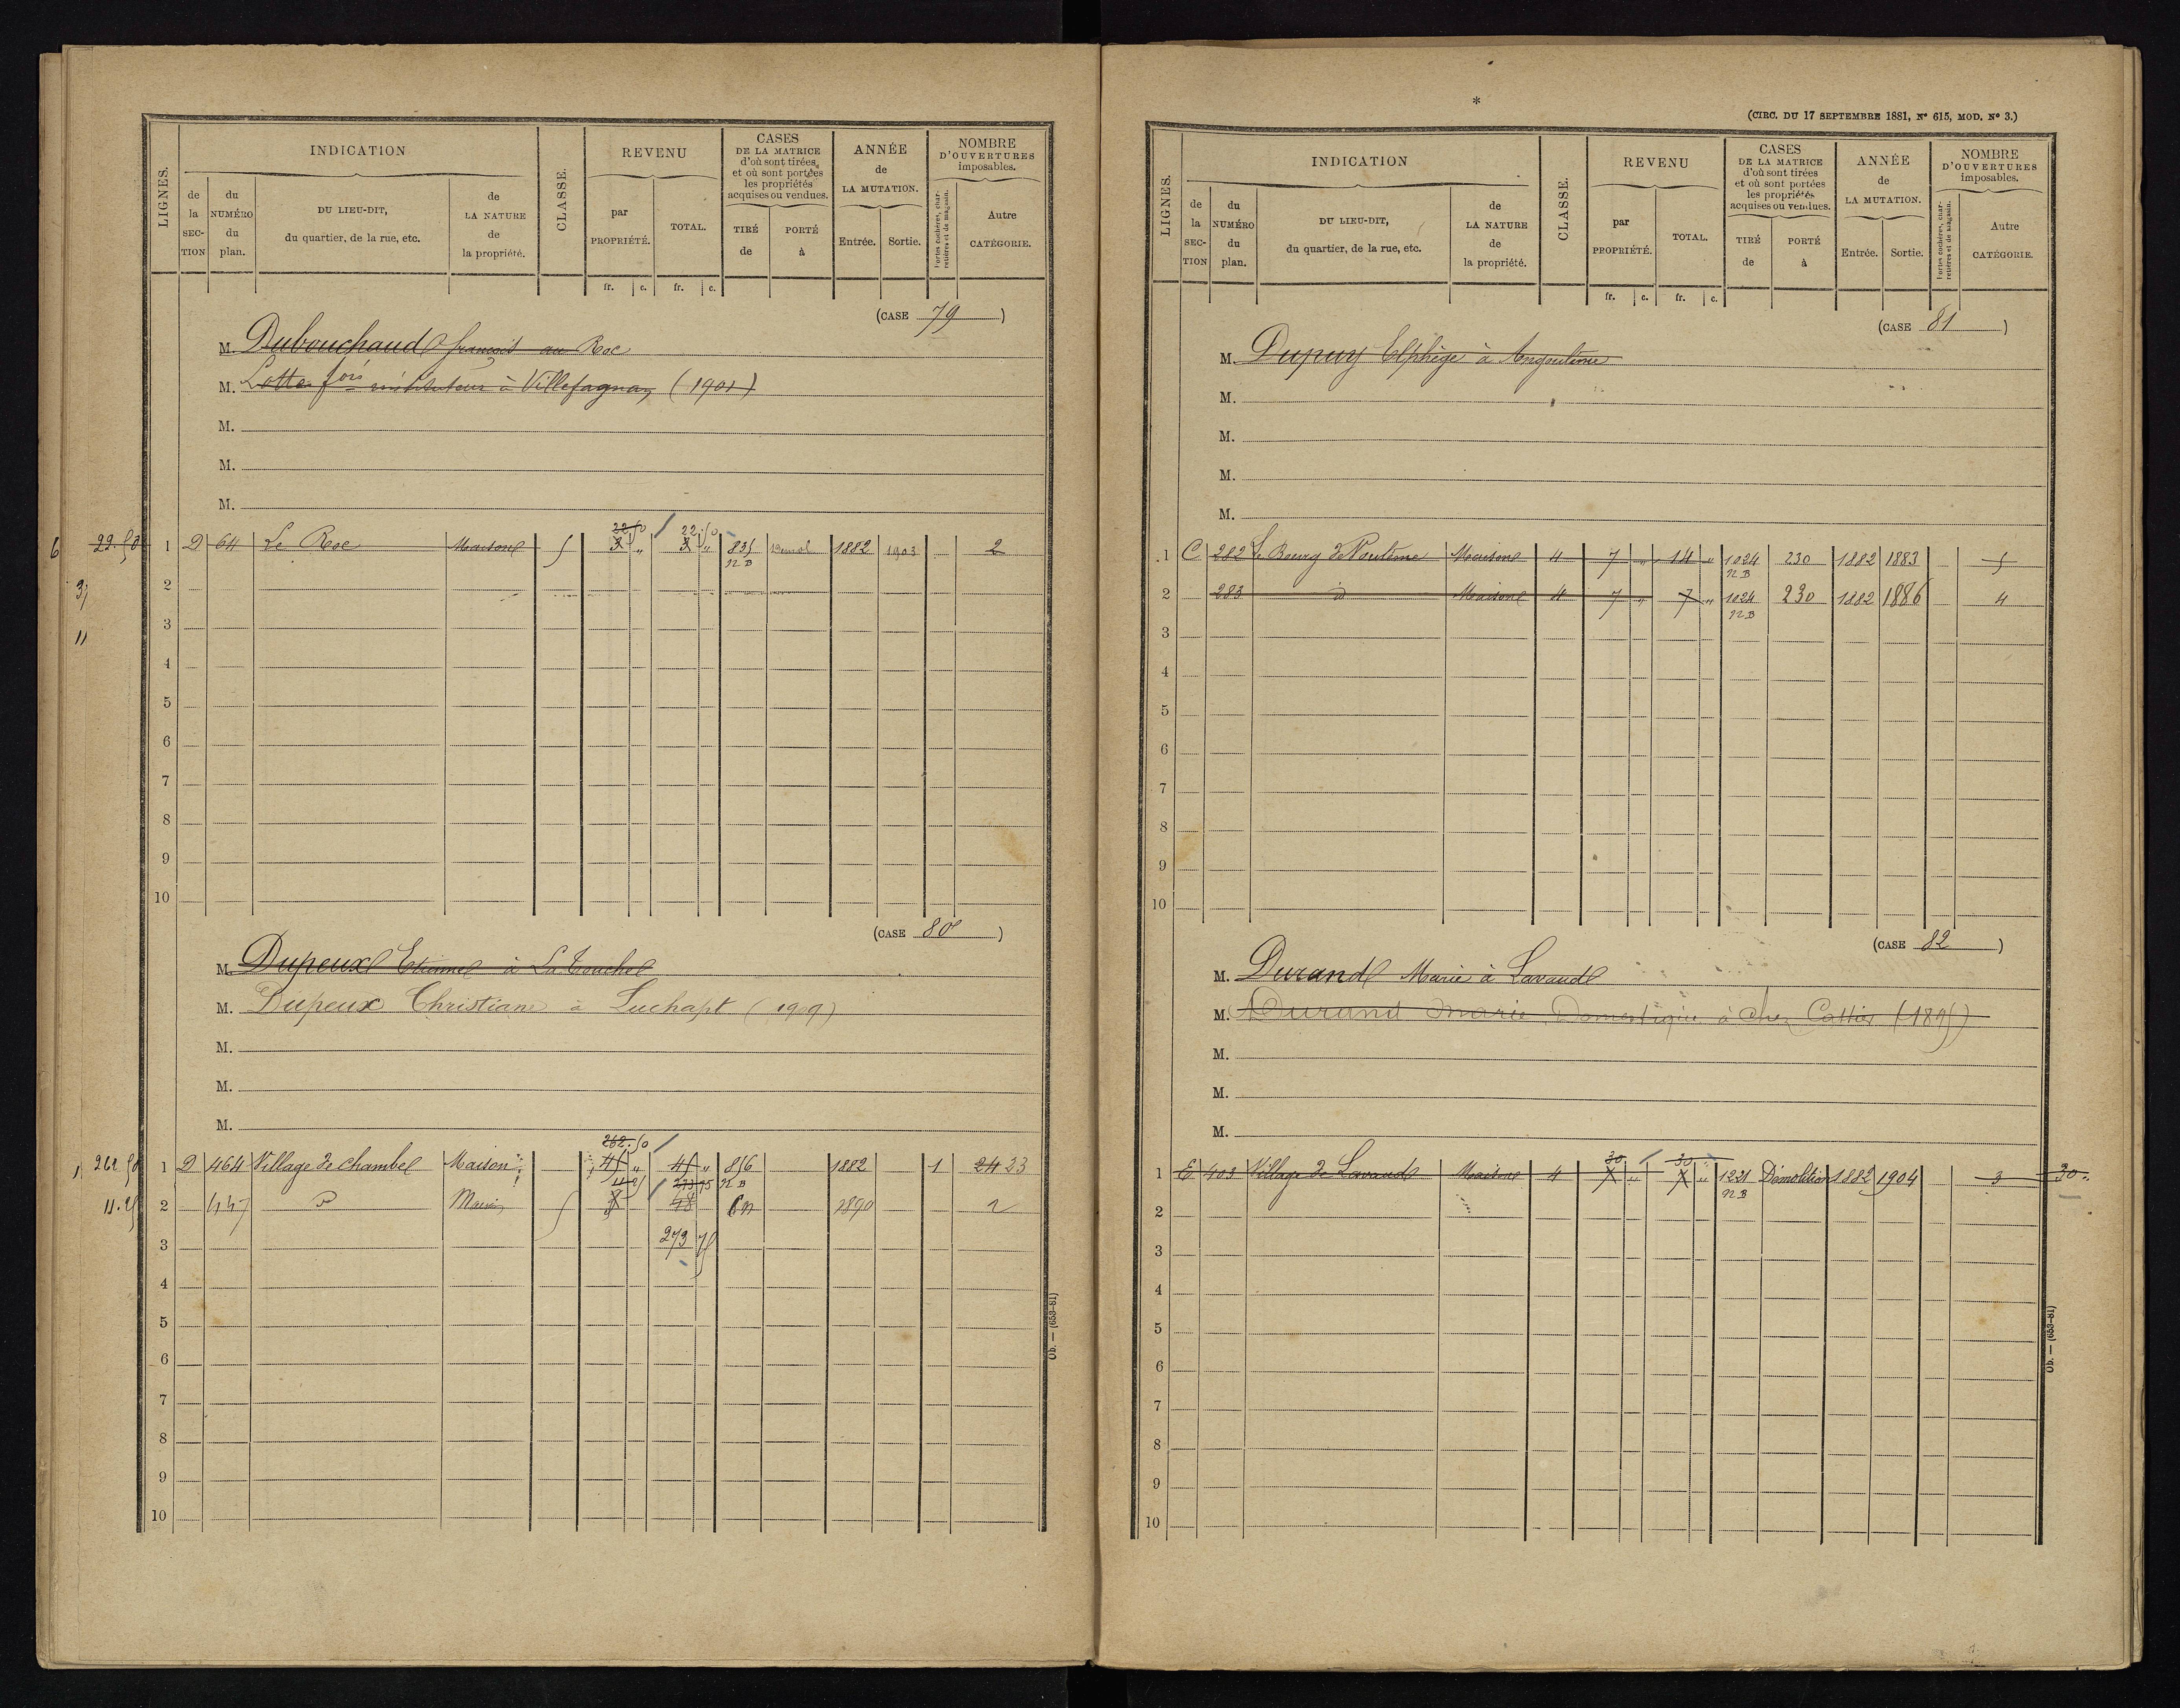 LIGNES. INDICATION CLASSE. REVENU CASES DE LA MATRICE d'où sont tirées et où sont portées les propriétés acquises ou vendues. ANNÉE de LA MUTATION. NOMBRE D'OUVERTURES imposables.
de la SECTION du NUMÉRO du plan. DU LIEU-DIT, du quartier, de la rue, etc. de LA NATURE de la propriété. par PROPRIÉTÉ. TOTAL. TIRÉ de PORTÉ à Entrée. Sortie. Portes cochères, charretières et de magasin. Autre CATÉGORIE.
fr. c. fr. c.
(CASE 79)
M. Dubouchaud françois au Roc
M. Lotte fois instituteur à Villefagnan (1901)
M.
M.
M.
6 22.50 1 D 64 Le Roc Maison 5 22 50 3 " 22.50 3 " 835 NB 1882 1903 2
2
3
4
5
6
7
8
9
10
(CASE 80)
M. Dupeux Etienne à La Touche
M. Dupeux Christian à Luchapt (1909)
M.
M.
M.
262 50 1 D 464 Village de Chambe Maison 262.50 45 " 45 " 856 NB 1882 1 24 23
11.25 2 447 Maison 5 11 25 3 273 75 48 1890 2
3 273 75
4
5
6
7
8
9
10
Ob. — (653-81)
*
(CIRC. DU 17 SEPTEMBRE 1881, N° 615, MOD. N° 3.)
LIGNES. INDICATION CLASSE. REVENU CASES DE LA MATRICE d'où sont tirées et où sont portées les propriétés acquises ou vendues. ANNÉE de LA MUTATION. NOMBRE D'OUVERTURES imposables.
de la SECTION du NUMÉRO du plan. DU LIEU-DIT, du quartier, de la rue, etc. de LA NATURE de la propriété. par PROPRIÉTÉ. TOTAL. TIRÉ de PORTÉ à Entrée. Sortie. Portes cochères, charretières et de magasin. Autre CATÉGORIE.
fr. c. fr. c.
(CASE 81)
M. Dupuy Elphège à Angoulême
M.
M.
M.
M.
1 C 282 Le Bourg de Maison 4 7 " 14 " 1024 NB 230 1882 1883 5
2 283 id Maison 4 7 " 7 " 1024 NB 230 1882 1886 4
3
4
5
6
7
8
9
10
(CASE 82)
M. Durand Marie à Lavaud
M. Durand Marie Domestique à Chez (1895)
M.
M.
M.
1 E 403 Village de Lavaud Maison 4 30 7 " 30 7 " 1221 NB Démolition 1882 1904 3 30
2
3
4
5
6
7
8
9
10
Ob. — (653-81)